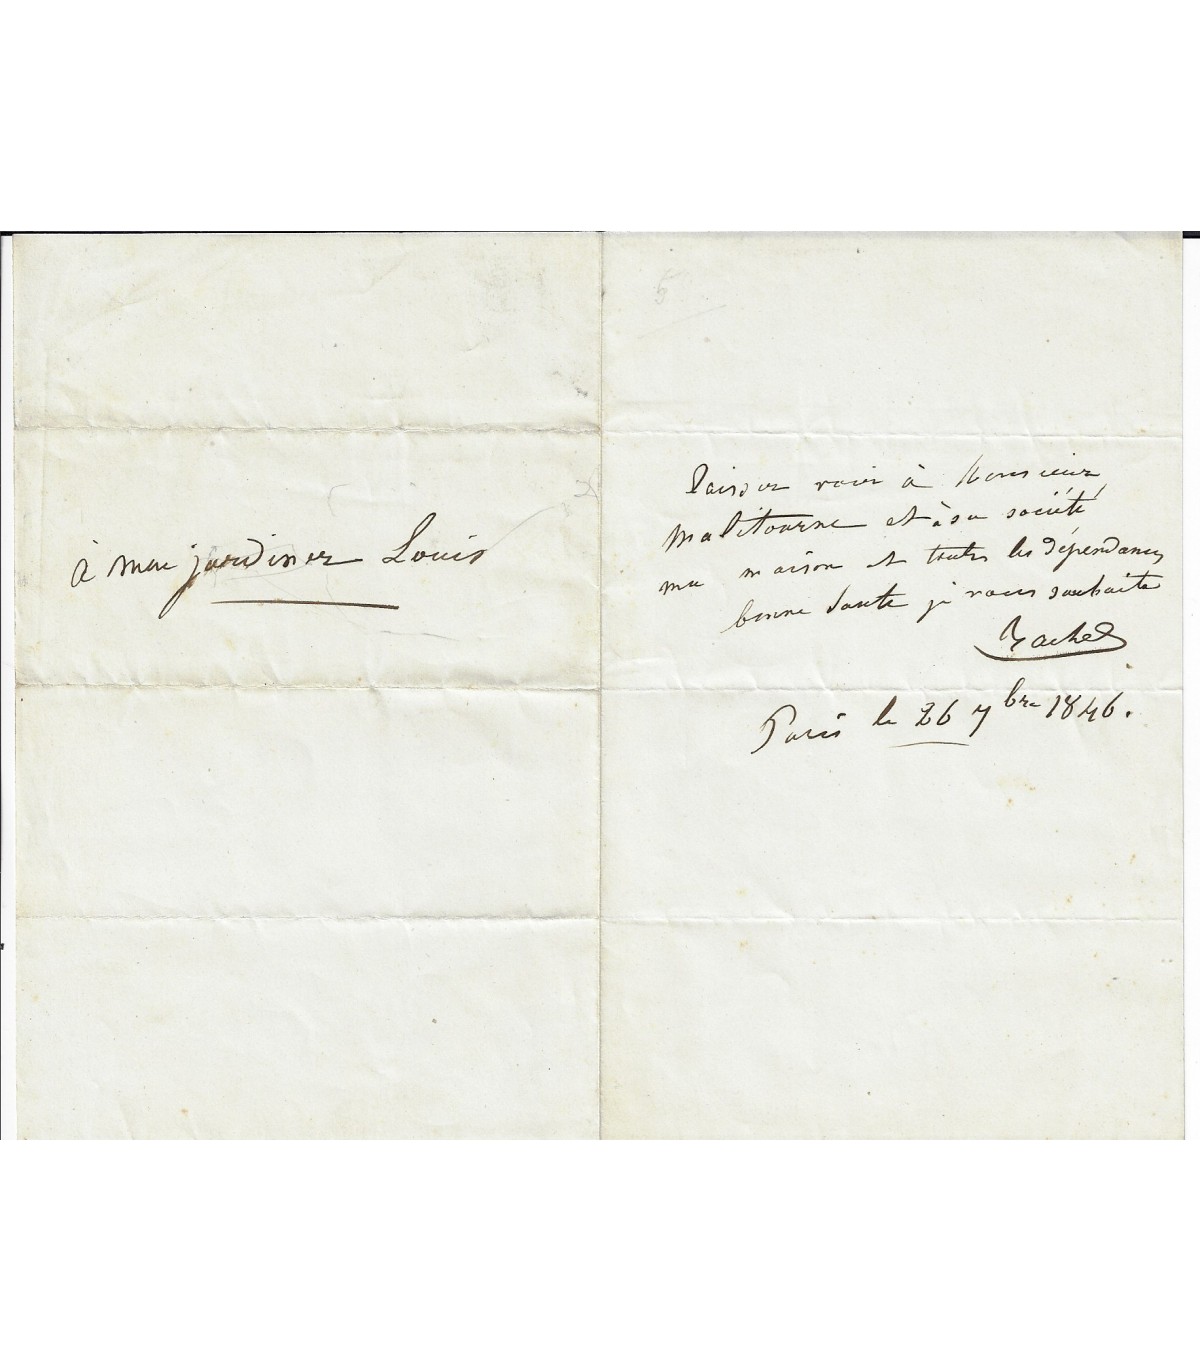 à mon jardinier Louis
laissez voir à Monsieur
Malitourne et à sa société
ma maison et toutes les dépendances
bonne santé je vous souhaite
Rachel
Paris le 26 7bre 1846.
5